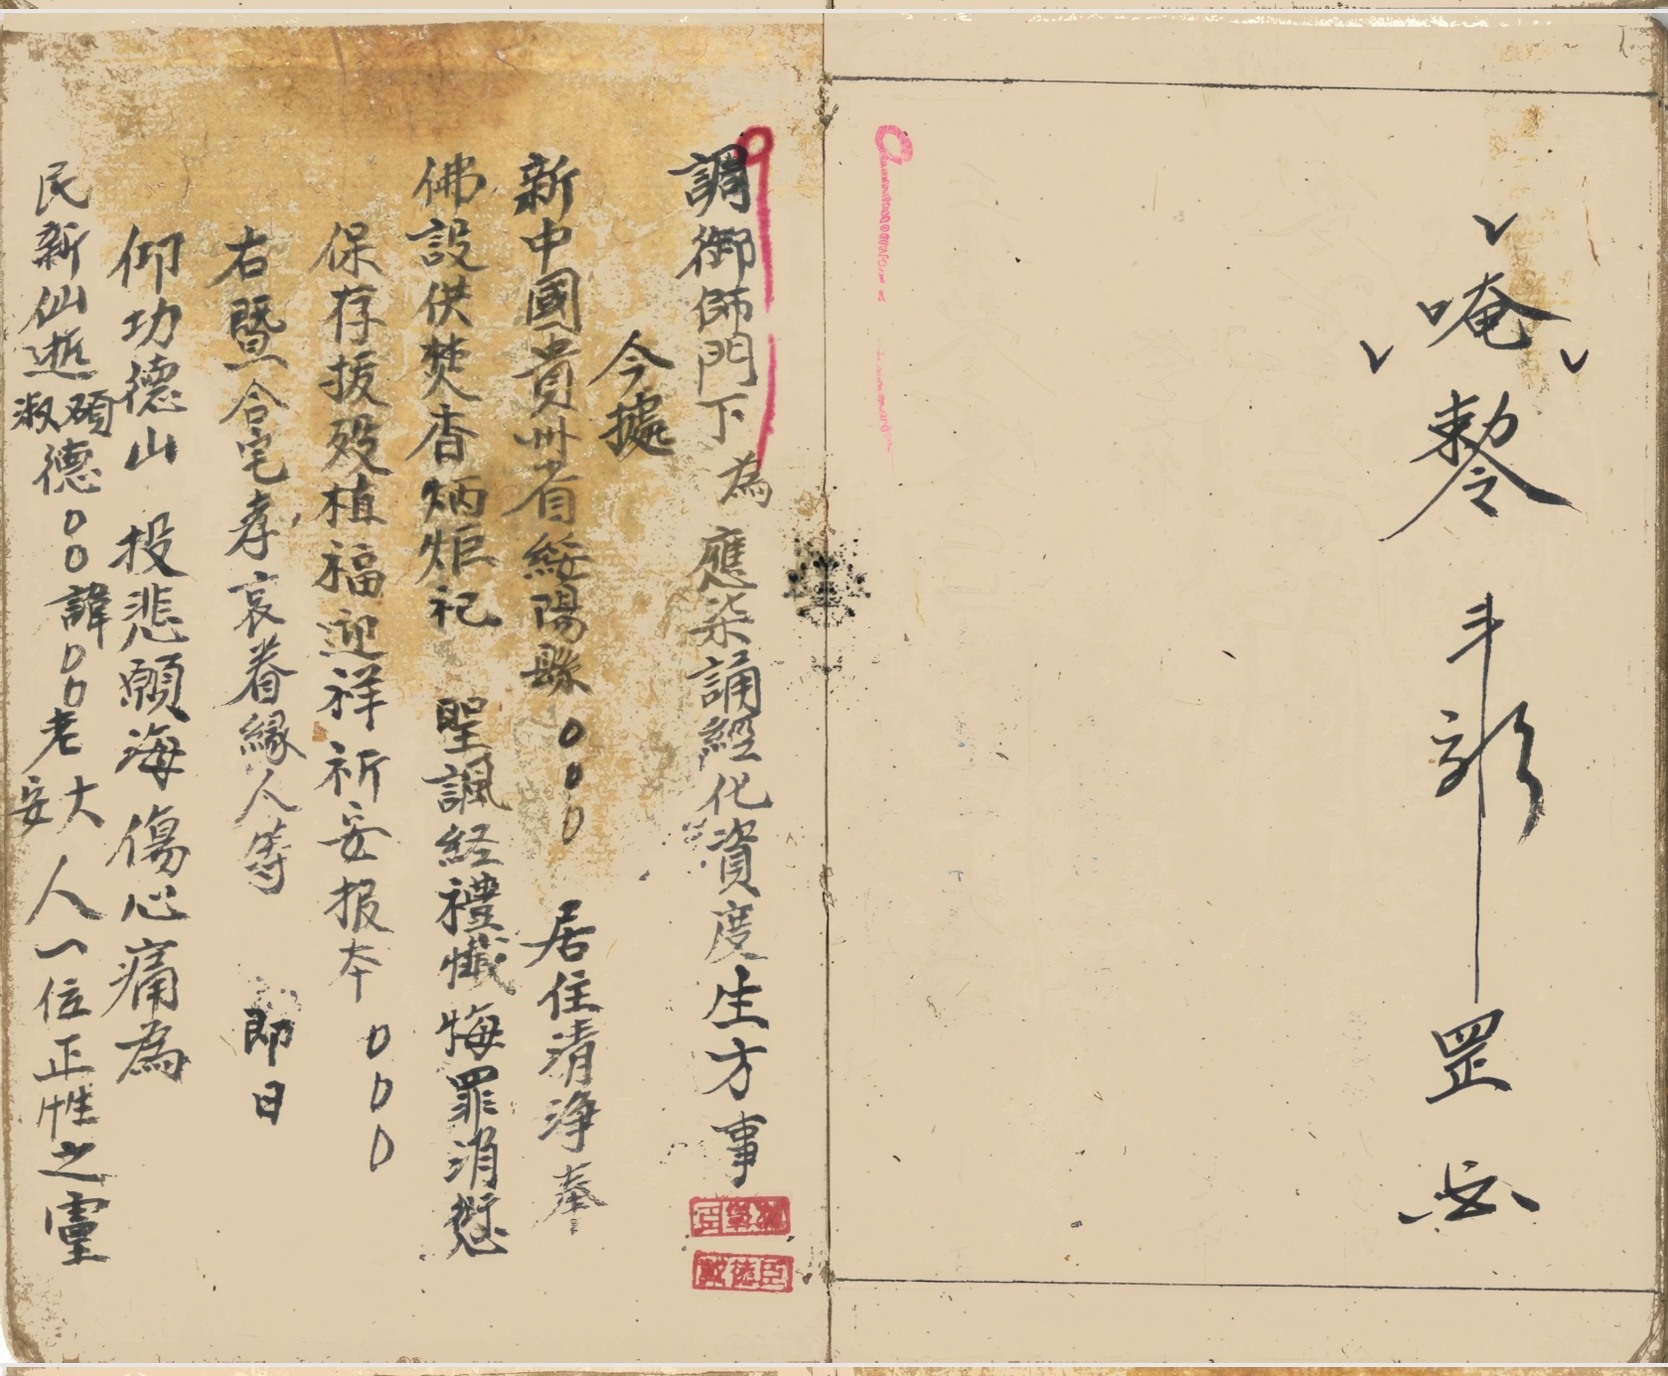 唵
敕令
斗
罡
調御師門下為應柒誦經化資度生方事
今據
新中國貴州省綏陽縣000居住清淨奉
佛設供焚香炳炬祀聖諷経禮懺悔罪消愆
保存援殁植福迎祥祈安报本000
右暨合宅孝哀眷緣人等即日
仰功德山投悲願海傷心痛為
民新仙逝碩淑德00諱00老大安人一位正性之靈